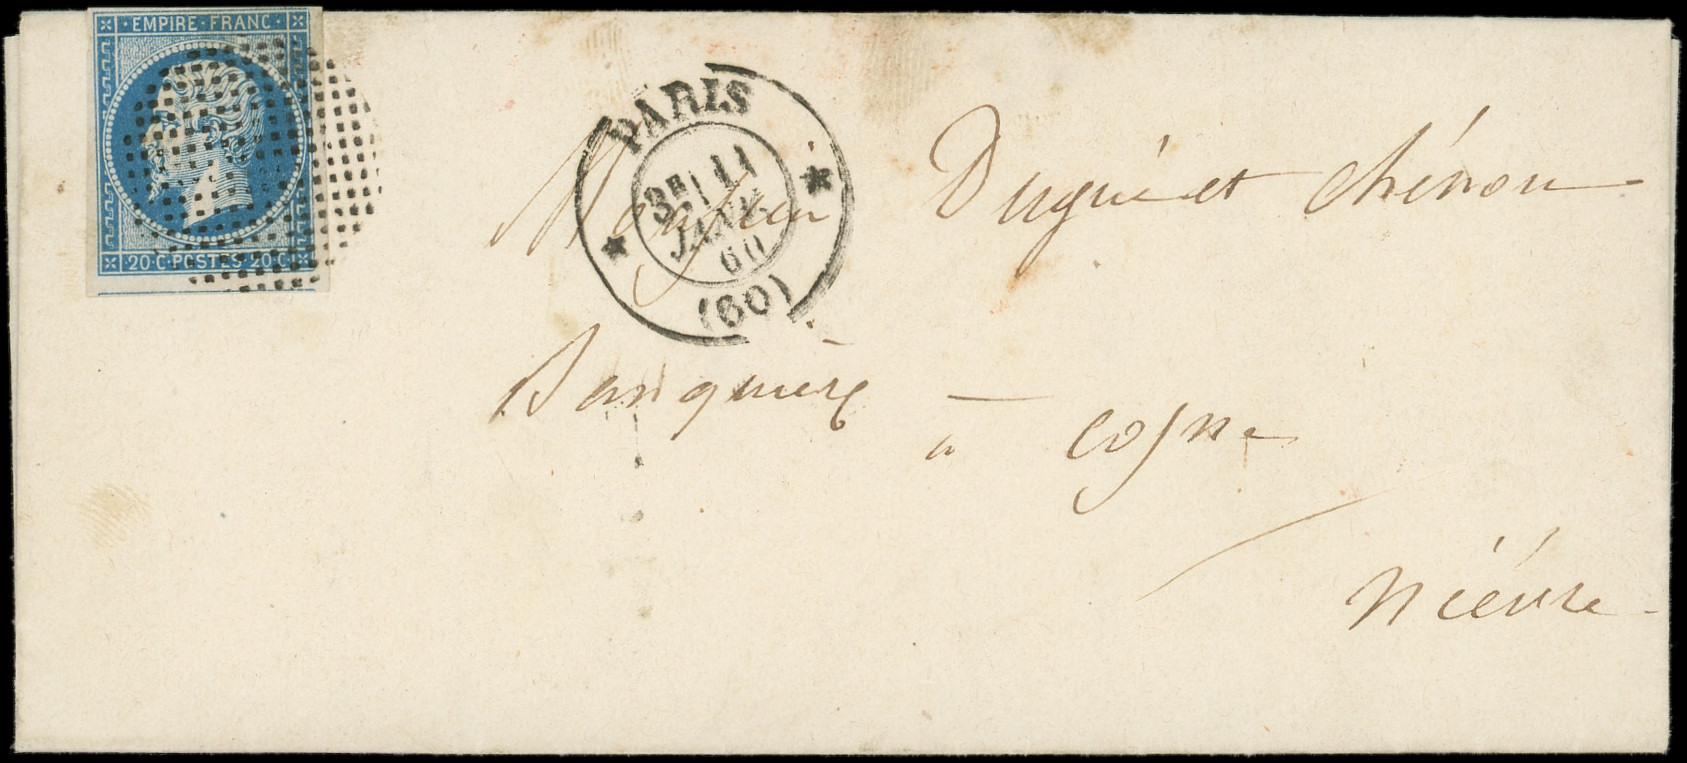 EMPIRE · FRANC ·
20 · C · POSTES · 20 · C ·
PARIS
3E 11
JANV.
60
(60)
Dugué et Chénou
Banquiers
à Cosne
Nièvre